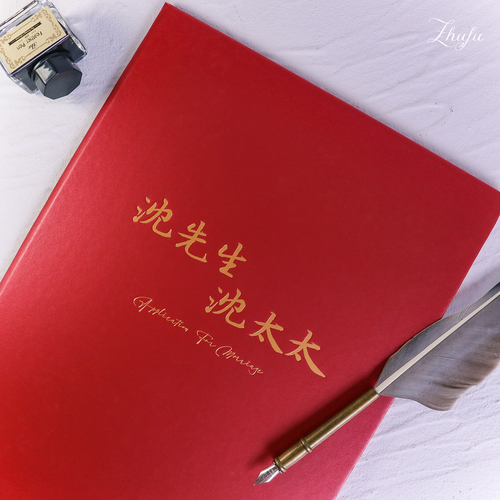 Zhufu
The
Feather Pen
沈先生
沈太太
Application For Marriage